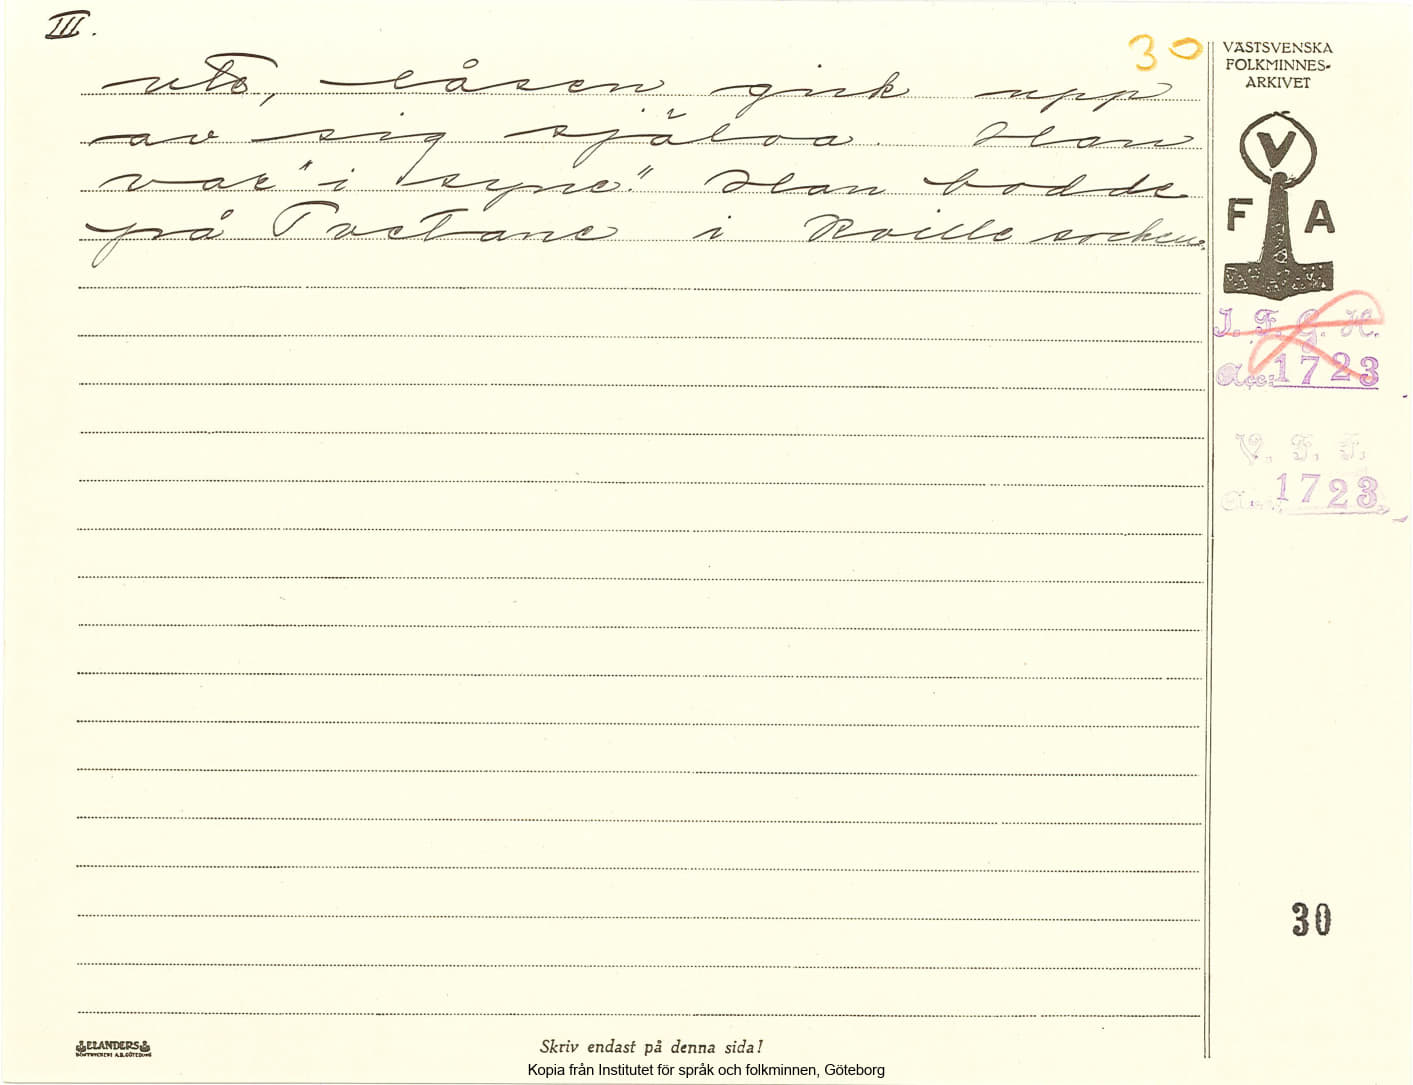 III.
30
ute, låsen gick upp
av sig själva. Han
var "i syne". Han bodde
på Tvetane i Kville socken.
VÄSTSVENSKA
FOLKMINNES-
ARKIVET
V
F A
I. F. G. H.
Acc: 1723
V. F. F.
1723
30
ELANDERS
BOKTRYCKERI A.B. GÖTEBORG
Skriv endast på denna sida!
Kopia från Institutet för språk och folkminnen, Göteborg